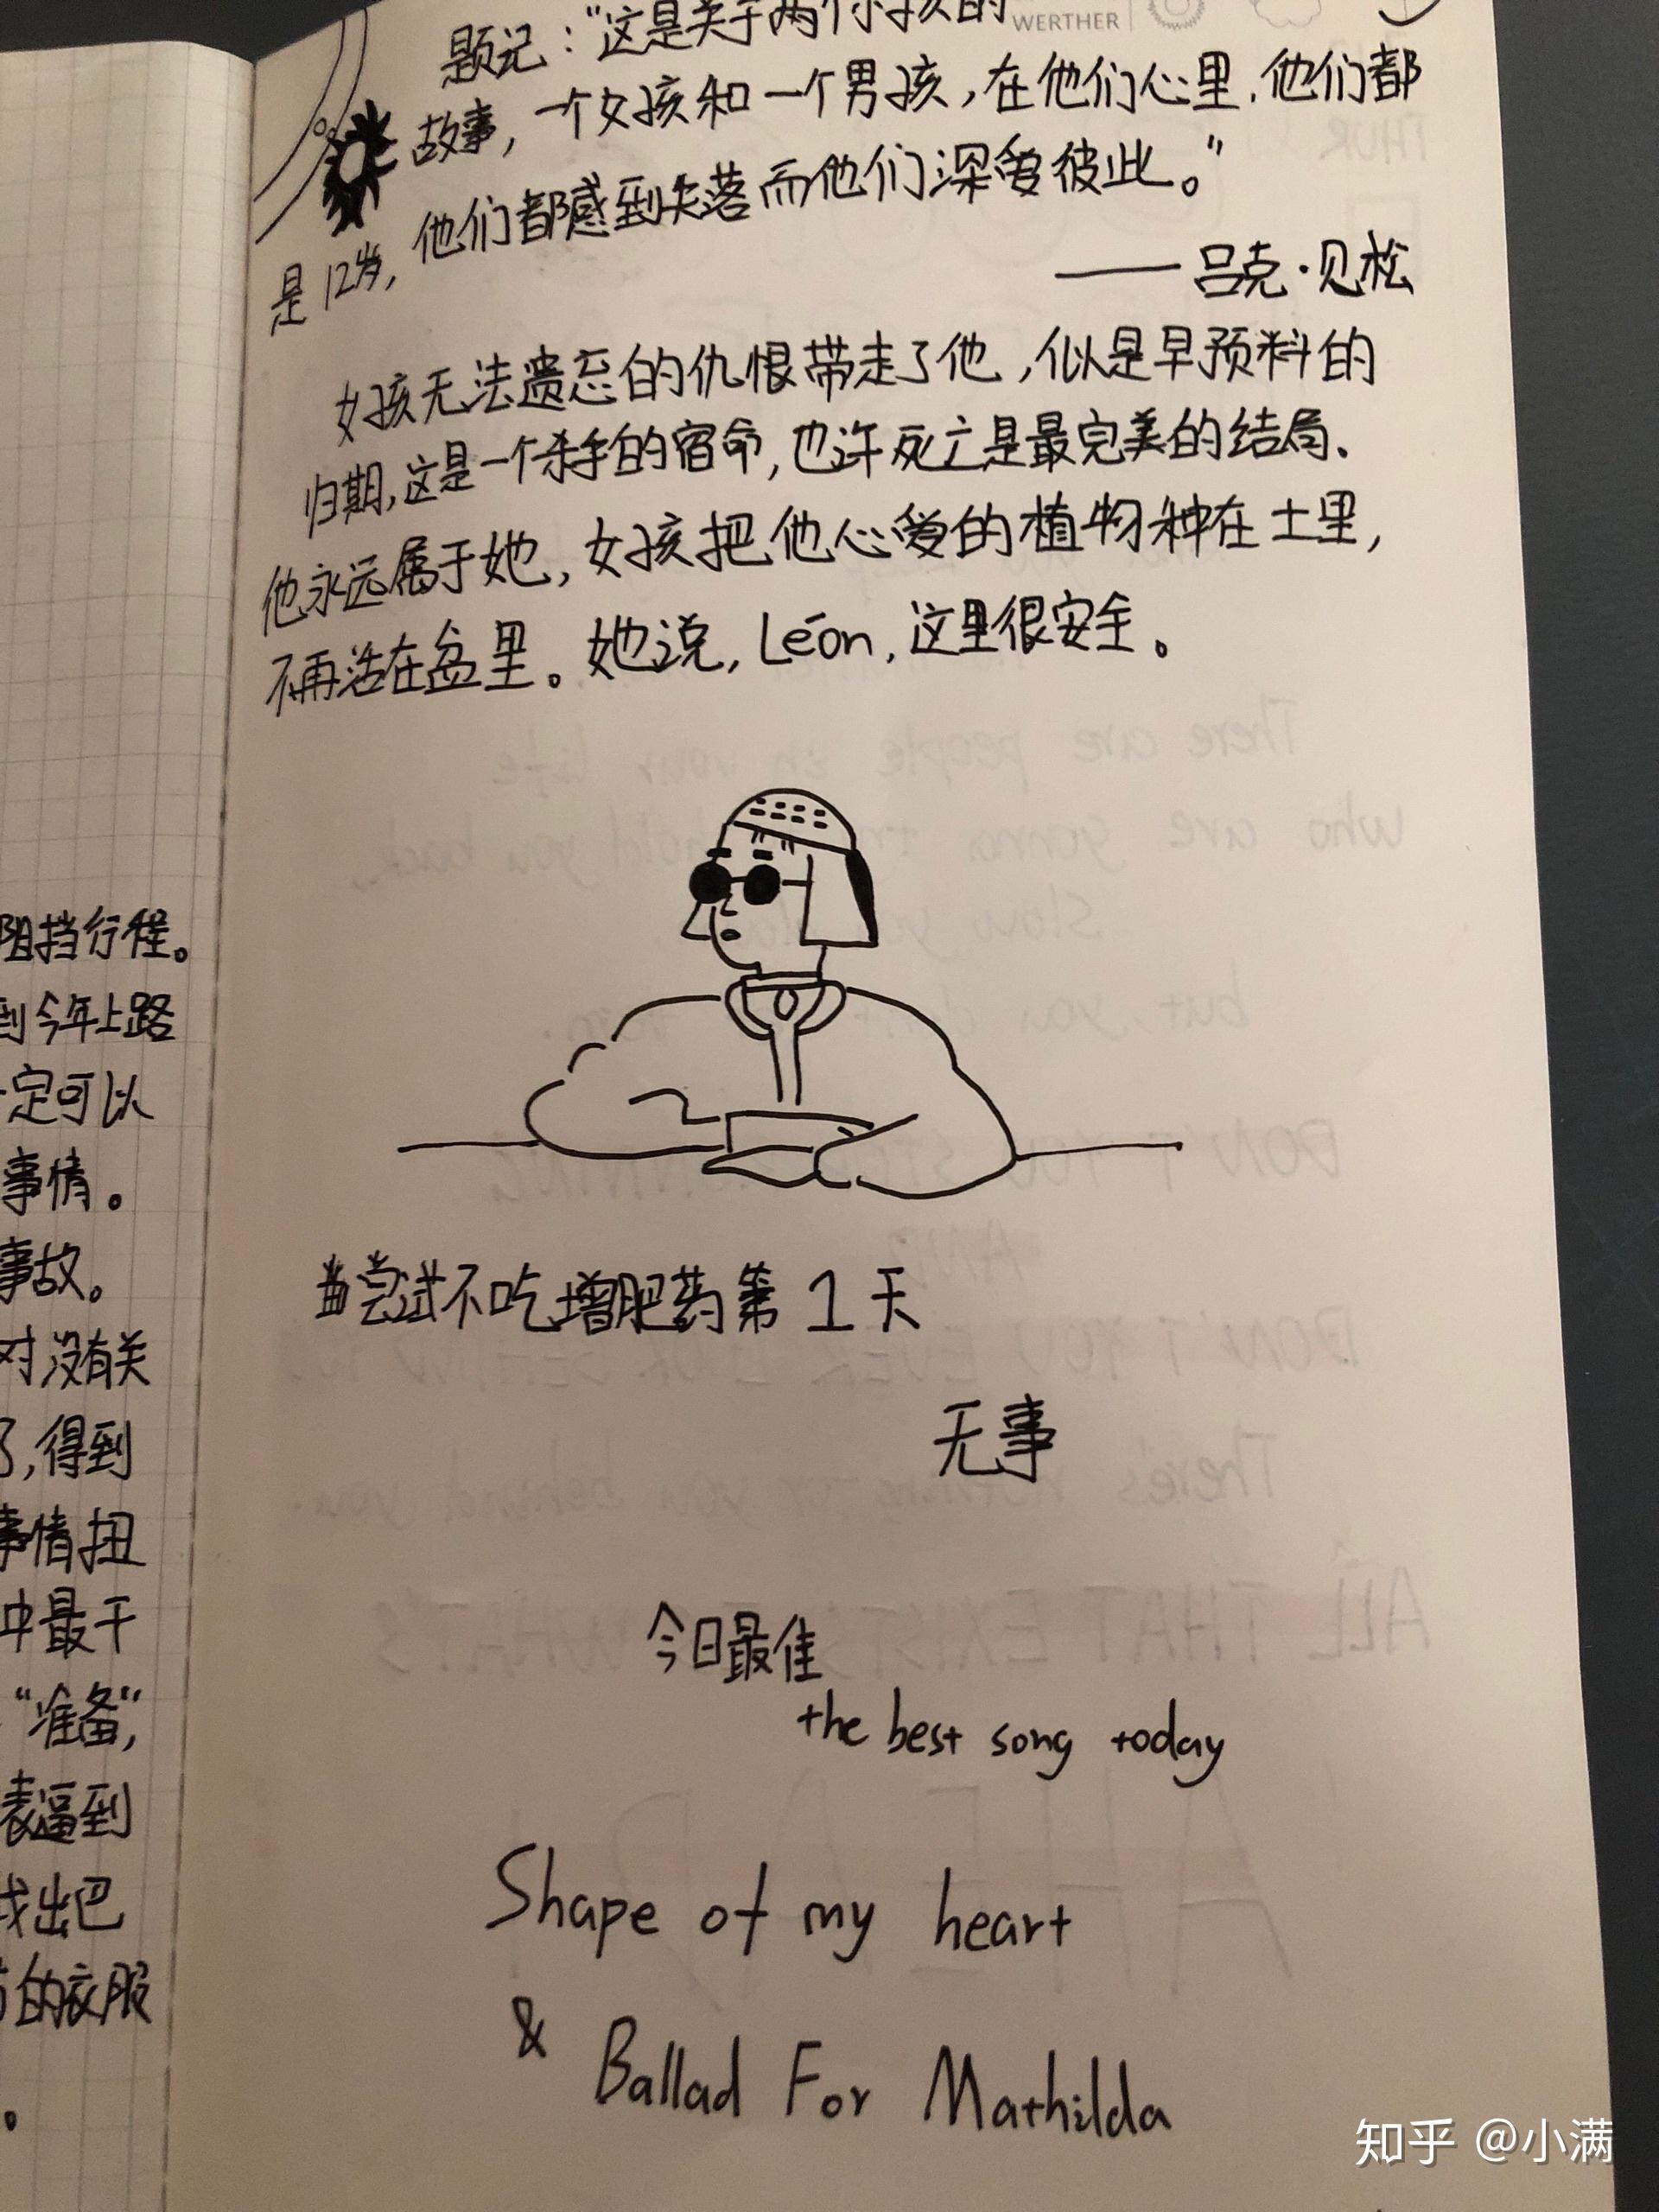 题记：“这是关于两个小孩的
WERTHER
故事，一个女孩和一个男孩，在他们心里，他们都
是12岁，他们都感到失落而他们深爱彼此。”
——吕克·贝松
女孩无法遗忘的仇恨带走了他，似是早预料的
归期，这是一个杀手的宿命，也许死亡是最完美的结局、
他永远属于她，女孩把他心爱的植物种在土里，
不再活在盆里。她说，Léon，这里很安全。
当尝试不吃增肥药第1天
无事
今日最佳
the best song today
Shape of my heart
& Ballad For Mathilda
阻挡行程。
到今年上路
一定可以
事情。
事故。
对没有关
了，得到
事情扭
中最干
“准备”，
表逼到
找出巴
的衣服
。
知乎 @小满